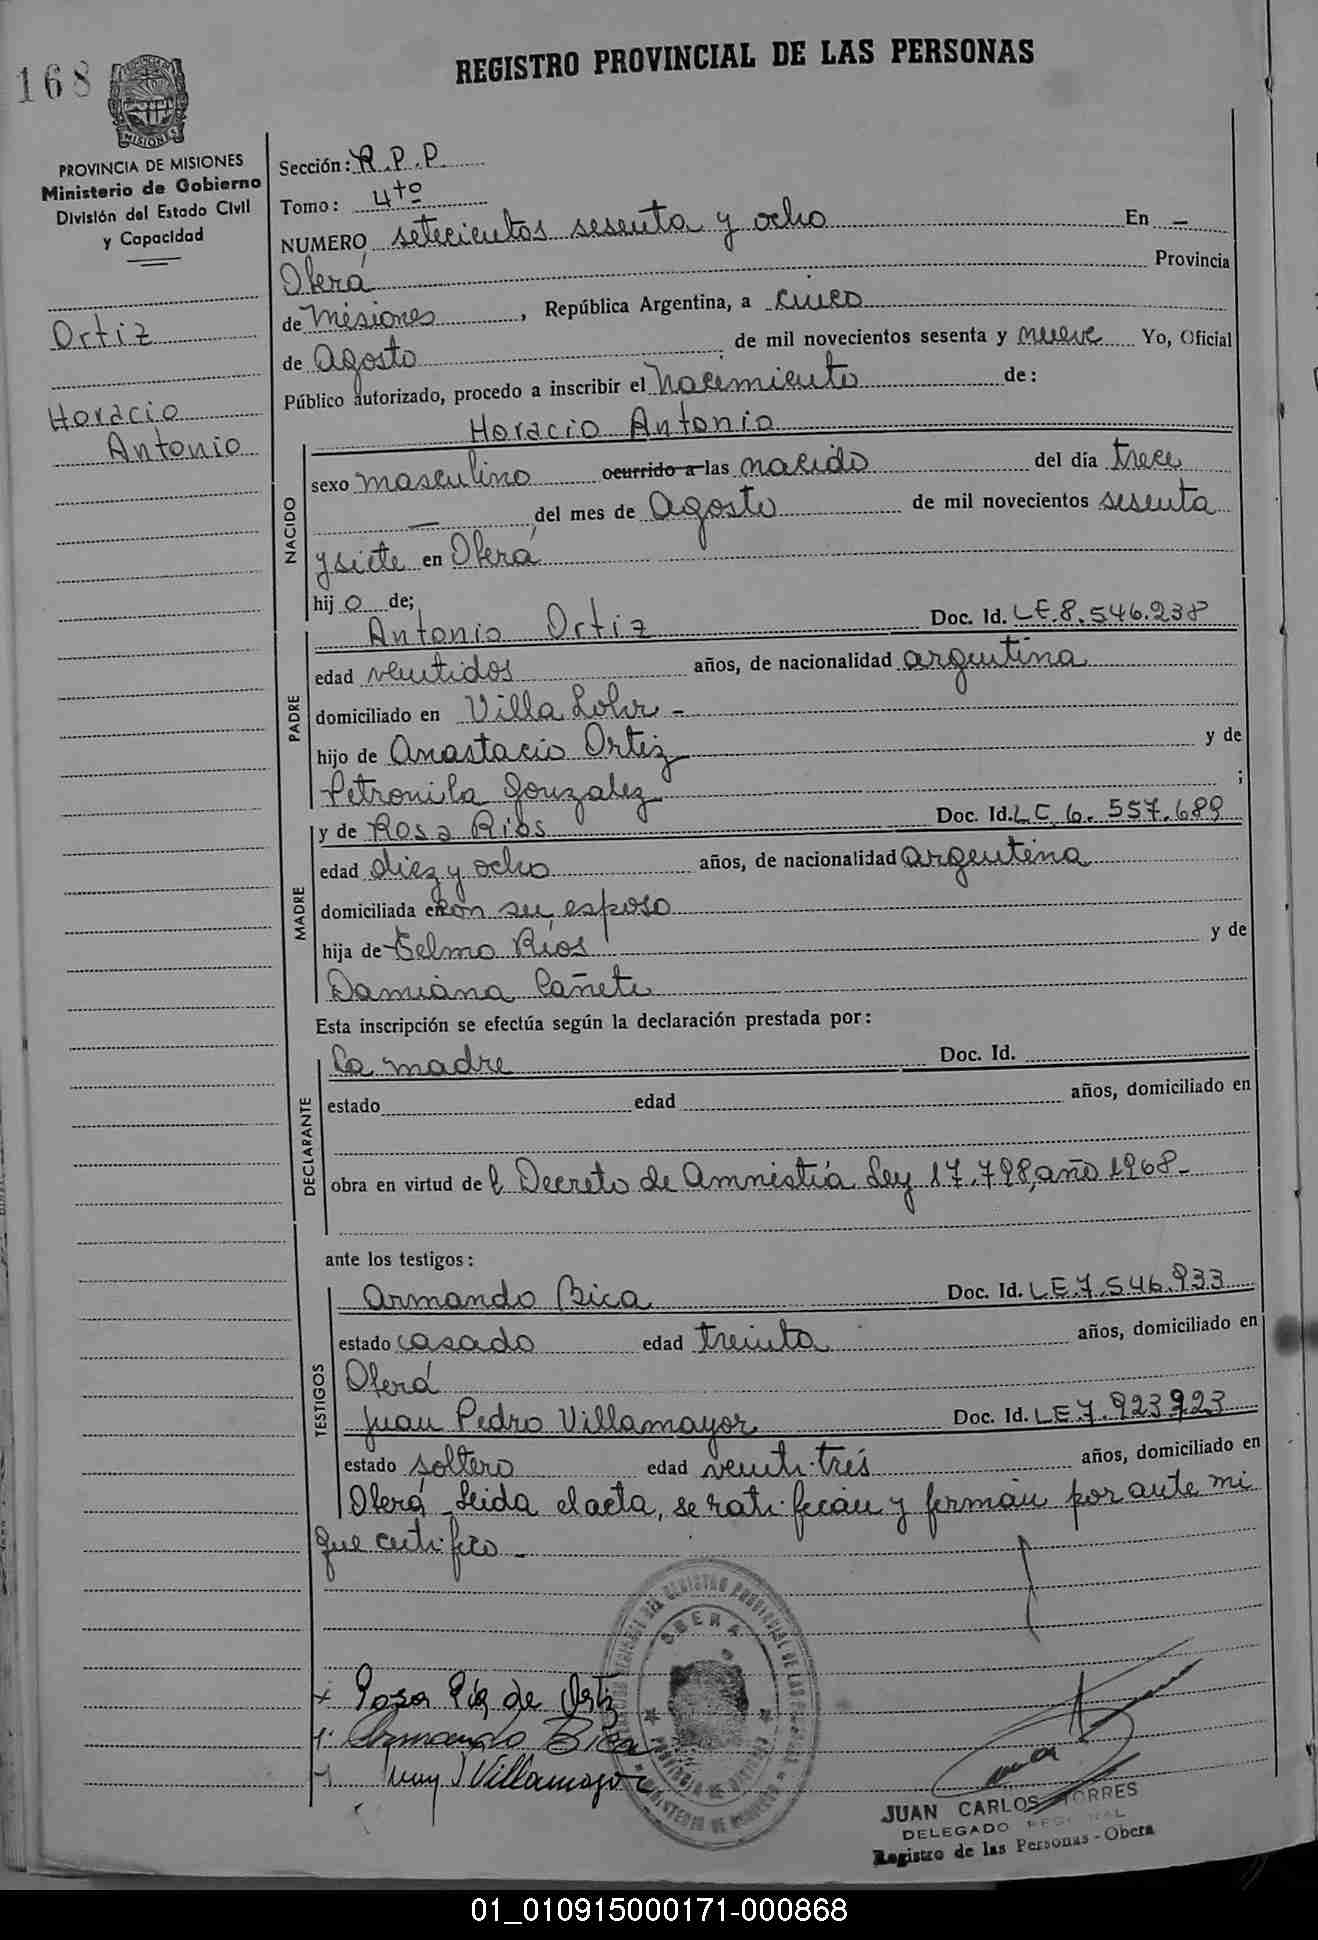 168
REGISTRO PROVINCIAL DE LAS PERSONAS
MISIONES
PROVINCIA DE MISIONES
Ministerio de Gobierno
División del Estado Civil
y Capacidad
Ortiz
Horacio
Antonio
Sección: R.P.P
Tomo: 4to
NUMERO setecientos sesenta y ocho En —
Oberá Provincia
de Misiones, República Argentina, a cinco
de Agosto de mil novecientos sesenta y nueve Yo, Oficial
Público autorizado, procedo a inscribir el Nacimiento de:
Horacio Antonio
NACIDO
sexo masculino ocurrido a las nacido del día trece
— del mes de Agosto de mil novecientos sesenta
y siete en Oberá
hijo de;
PADRE
Antonio Ortiz Doc. Id. LE.8.546.238
edad ventidos años, de nacionalidad argentina
domiciliado en Villa Lohr -
hijo de Anastacio Ortiz y de
Petronila Gonzalez ;
MADRE
y de Rosa Rios Doc. Id. LC 6.557.689
edad diez y ocho años, de nacionalidad argentina
domiciliada en con su esposo
hija de Telmo Ríos y de
Damiana Cañete
Esta inscripción se efectúa según la declaración prestada por:
DECLARANTE
La madre Doc. Id.
estado edad años, domiciliado en
obra en virtud del Decreto de Amnistía Ley 17.798, año 1968-
ante los testigos:
TESTIGOS
Armando Bica Doc. Id. LE.7.546.933
estado casado edad treinta años, domiciliado en
Oberá
Juan Pedro Villamayor Doc. Id. LE 7.923.723
estado soltero edad venti-trés años, domiciliado en
Oberá - Leida el acta, se ratifican y firman por ante mi
que certifico -
Rosa de Ortiz
Armando Bica
Juan Villamayor
OBERA
JUAN CARLOS TORRES
DELEGADO REGIONAL
Registro de las Personas - Obera
01_010915000171-000868